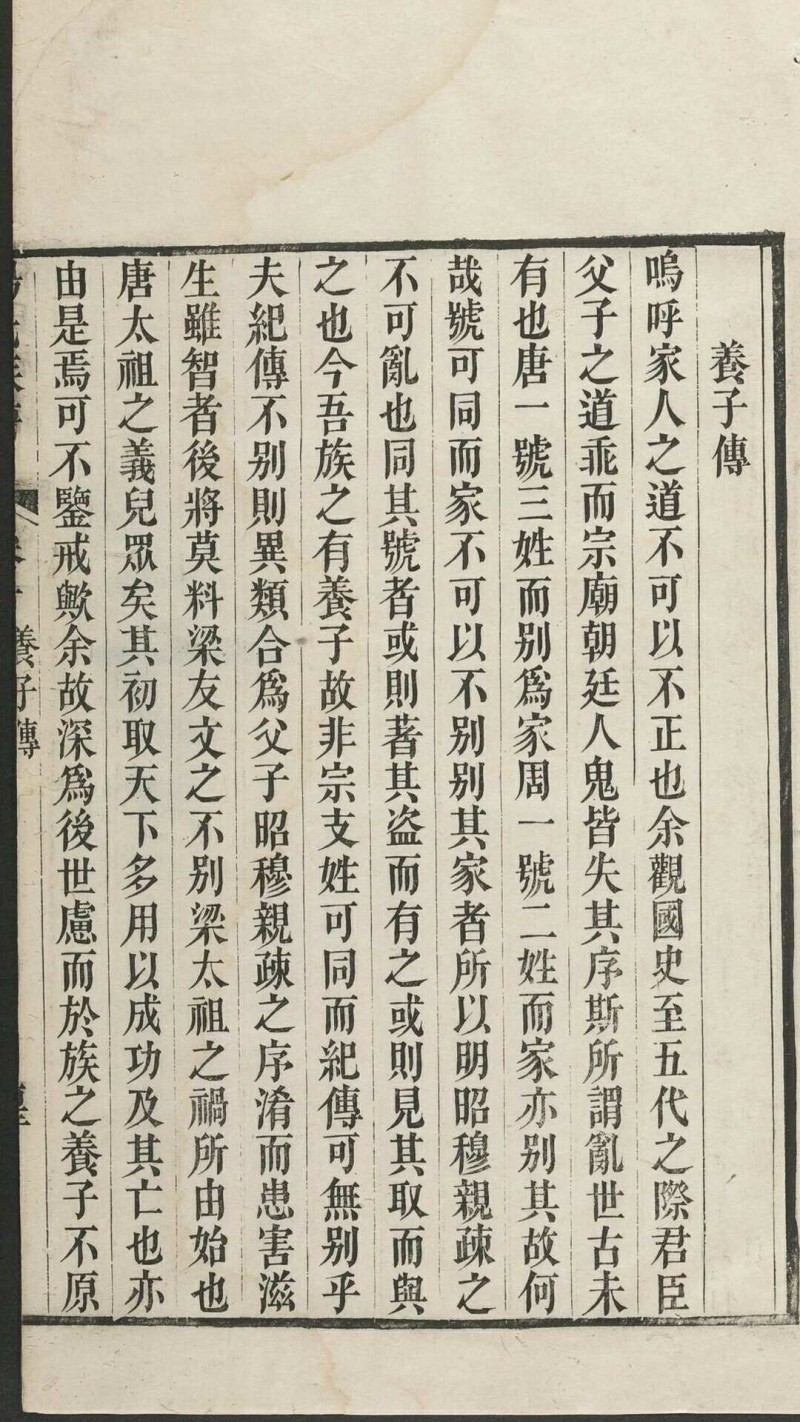 養子傳
嗚呼家人之道不可以不正也余觀國史至五代之際君臣
父子之道乖而宗廟朝廷人鬼皆失其序斯所謂亂世古未
有也唐一號三姓而別爲家周一號二姓而家亦別其故何
哉號可同而家不可以不別別其家者所以明昭穆親疎之
不可亂也同其號者或則著其盜而有之或則見其取而與
之也今吾族之有養子故非宗支姓可同而紀傳可無別乎
夫紀傳不別則異類合爲父子昭穆親疎之序淆而患害滋
生雖智者後將莫料梁友文之不別梁太祖之禍所由始也
唐太祖之義兒眾矣其初取天下多用以成功及其亡也亦
由是焉可不鑒戒歟余故深爲後世慮而於族之養子不原
養子傳